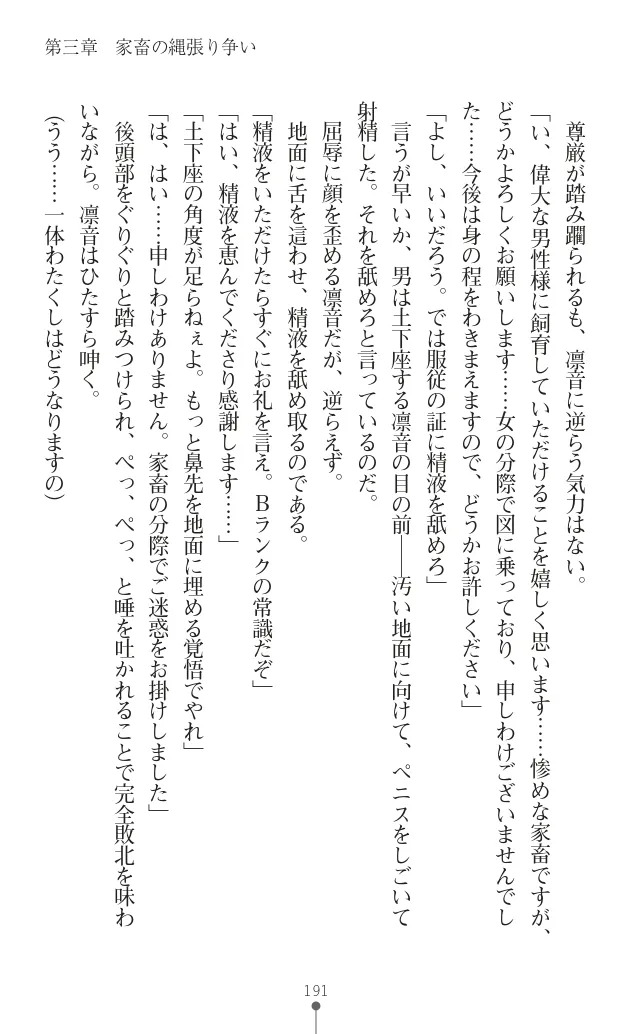 第三章　家畜の縄張り争い
　尊厳が踏み躙られるも、凛音に逆らう気力はない。
「い、偉大な男性様に飼育していただけることを嬉しく思います……惨めな家畜ですが、
どうかよろしくお願いします……女の分際で図に乗っており、申しわけございませんでし
た……今後は身の程をわきまえますので、どうかお許しください」
「よし、いいだろう。では服従の証に精液を舐めろ」
　言うが早いか、男は土下座する凛音の目の前――汚い地面に向けて、ペニスをしごいて
射精した。それを舐めろと言っているのだ。
　屈辱に顔を歪める凛音だが、逆らえず。
　地面に舌を這わせ、精液を舐め取るのである。
「精液をいただけたらすぐにお礼を言え。Bランクの常識だぞ」
「はい、精液を恵んでくださり感謝します……」
「土下座の角度が足らねぇよ。もっと鼻先を地面に埋める覚悟でやれ」
「は、はい……申しわけありません。家畜の分際でご迷惑をお掛けしました」
　後頭部をぐりぐりと踏みつけられ、ぺっ、ぺっ、と唾を吐かれることで完全敗北を味わ
いながら。凛音はひたすら呻く。
（うう……一体わたくしはどうなりますの）
191